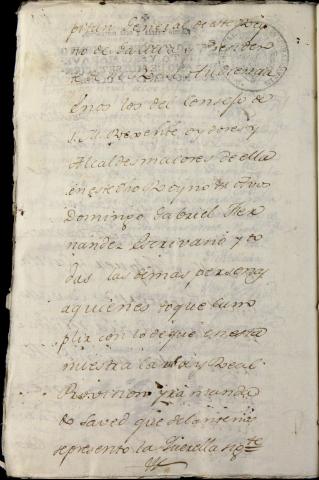 pitan General de este Rey
no de Galicia y Presiden
te de la Real Audiencia
Enos los del Consejo de
S. M. Rexente oydores y
Alcaldes maiores de ella
en este dho Reyno A vos
Domingo Gabriel Fer
nandez Escrivano y to
das las demas personas
aquienes toque cum
plir con lo de que en esta
nuestra carta y Real
Provision yra manda
do Saved que delante nos
se presento la Querella sigte